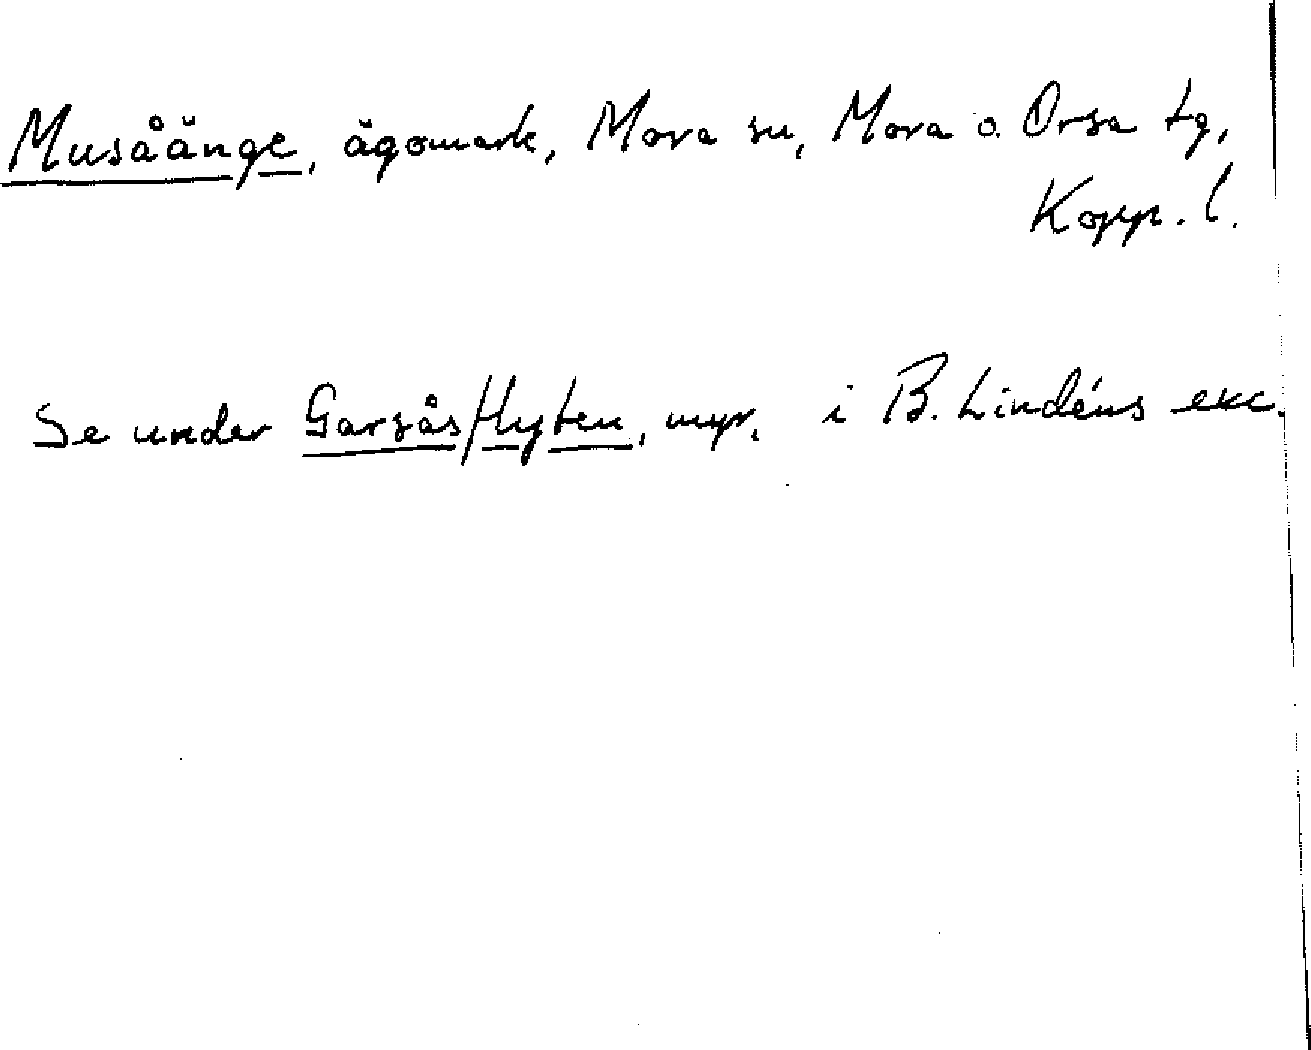 Musåänge, ägomark, Mora sn, Mora o. Orsa tg,
Kopp. l.
Se under Garsås/flyten, myr. i B. Lindéns exc.